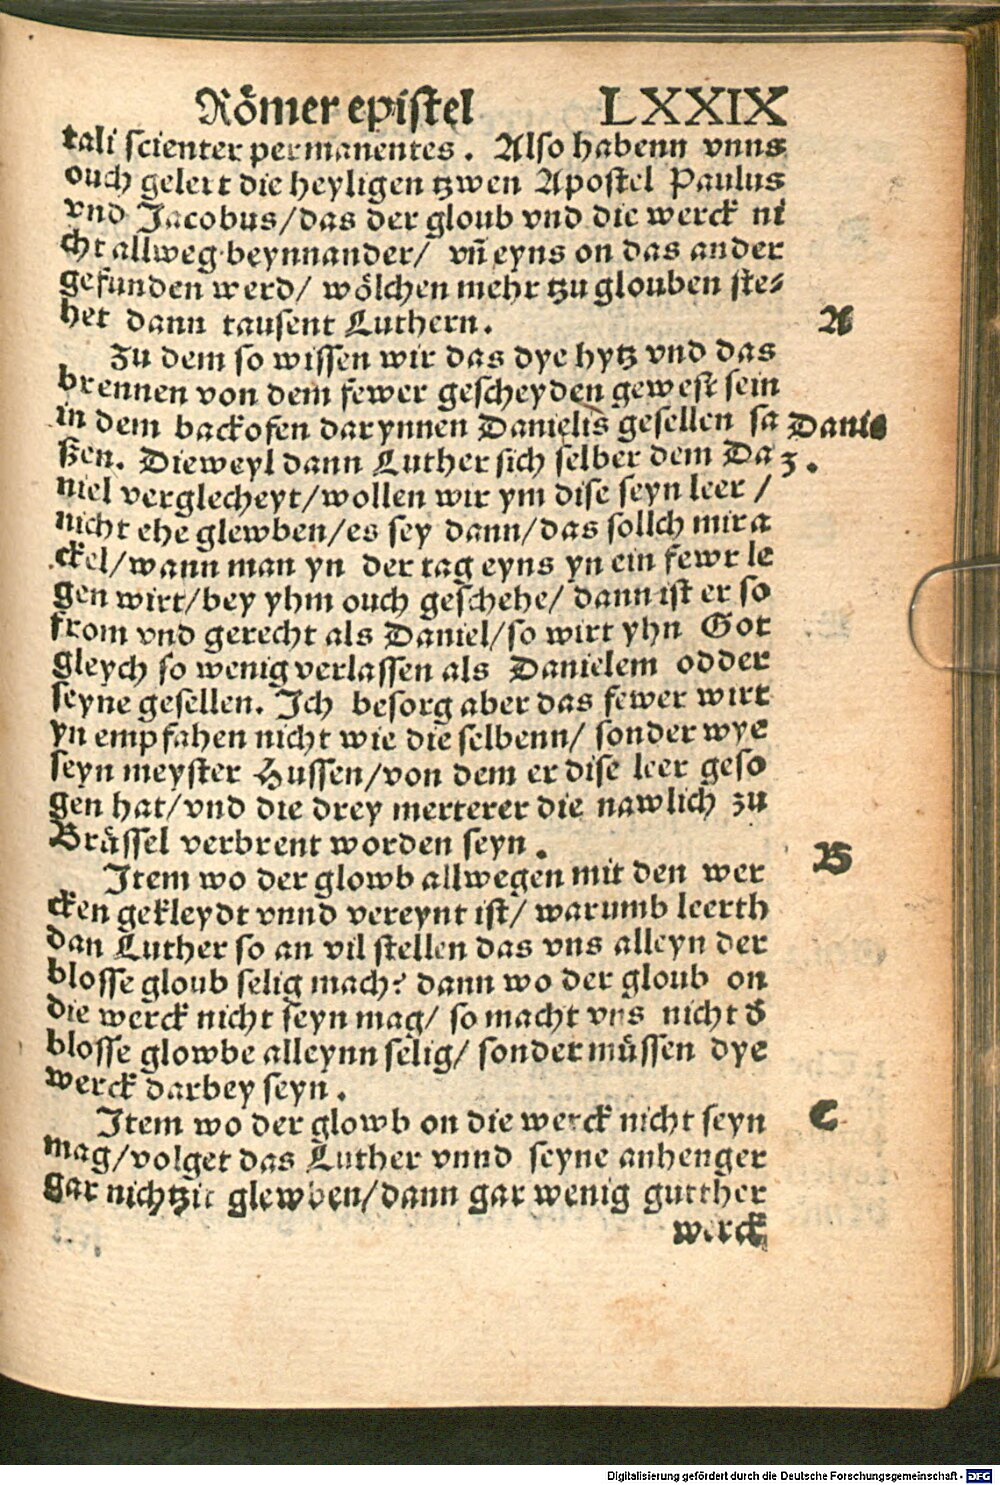 Römer epistel LXXIX
tali scienter permanentes. Also habenn vnns
ouch gelert die heyligen tzwen Apostel Paulus
vnd Jacobus/das der gloub vnd die werck ni
cht allweg beynnander/ vñ eyns on das ander
gefunden werd/ wölchen mehr tzu glouben ste⸗
het dann tausent Luthern.
A
Zu dem so wissen wir das dye hytz vnd das
brennen von dem fewer gescheyden gewest sein
in dem backofen darynnen Danielis gesellen sa
Danie
ßen. Dieweyl dann Luther sich selber dem Da
3.
niel verglecheyt/wollen wir ym dise seyn leer /
nicht ehe glewben/es sey dann/das sollch mira
ckel/wann man yn der tag eyns yn ein fewr le
gen wirt/bey yhm ouch geschehe/ dann ist er so
from vnd gerecht als Daniel/so wirt yhn Got
gleych so wenig verlassen als Danielem odder
seyne gesellen. Ich besorg aber das fewer wirt
yn empfahen nicht wie die selbenn/ sonder wye
seyn meyster Hussen/von dem er dise leer geso
gen hat/vnd die drey merterer die nawlich zu
Brüssel verbrent worden seyn.
B
Item wo der glowb allwegen mit den wer
cken gekleydt vnnd vereynt ist/ warumb leerth
dan Luther so an vil stellen das vns alleyn der
blosse gloub selig mach? dann wo der gloub on
die werck nicht seyn mag/ so macht vns nicht d̕
blosse glowbe alleynn selig/ sonder müssen dye
werck darbey seyn.
Item wo der glowb on die werck nicht seyn
C
mag/volget das Luther vnnd seyne anhenger
gar nichtzit glewben/dann gar wenig gutther
werck
Digitalisierung gefördert durch die Deutsche Forschungsgemeinschaft - DFG